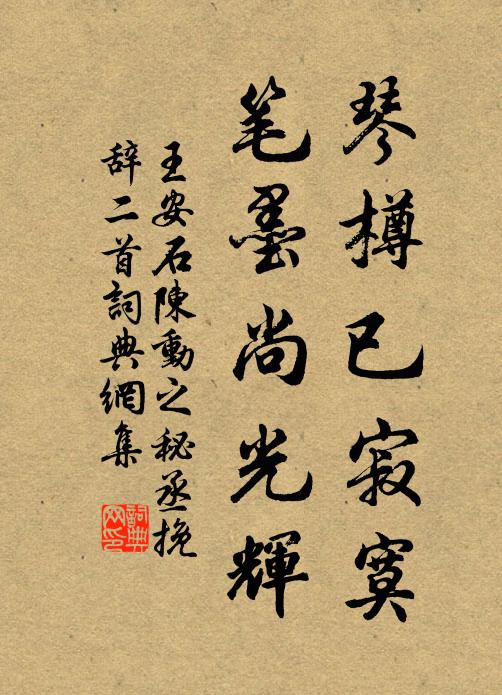 琴樽已寂寞
笔墨尚光輝
王安石陳動之秘丞挽
辞二首詞典網集
詞典网印